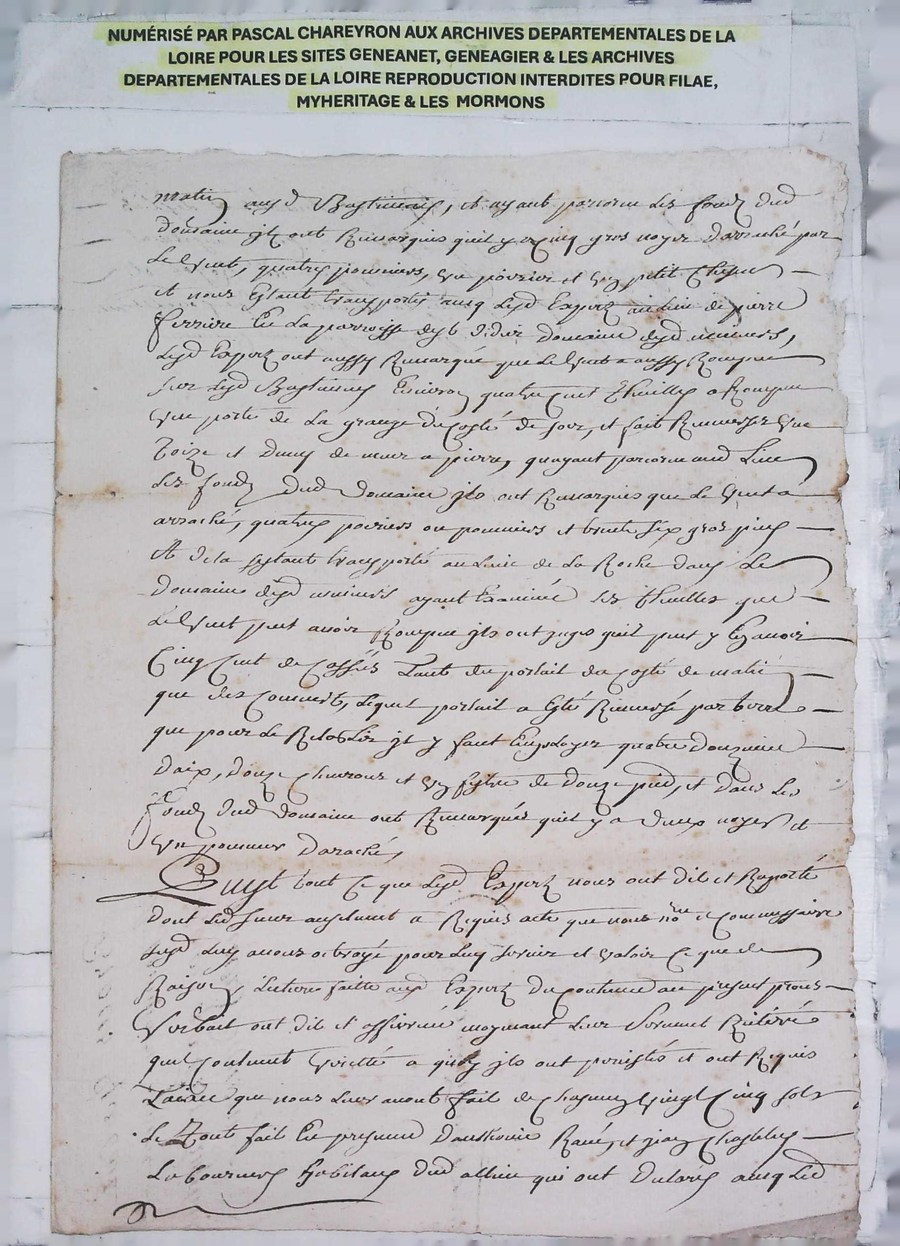 NUMÉRISÉ PAR PASCAL CHAREYRON AUX ARCHIVES DEPARTEMENTALES DE LA
LOIRE POUR LES SITES GENEANET, GENEAGIER & LES ARCHIVES
DEPARTEMENTALES DE LA LOIRE REPRODUCTION INTERDITES POUR FILAE,
MYHERITAGE & LES MORMONS
matin ausd Bastimens, et ayant parcorue les fondz dud
domaine jlz ont Remarqués quil y a cinq gros noyer darraché par
le Vent, quatre pommiers, un poirier et un petit Chesne
et nous Estant transportés avec lesd Expertz au lieu de pierre
ferriere En la parroisse de st didier domaine desd mineurs,
lesd Expertz ont aussy Remarqué que le Vent a aussy Rompue
sur lesd Bastimens Environ quatre cent thuilles a Rompue
Une porte de la grange du costé de soir, et fait Renverser Une
toize et demy de mur a pierre, quayant parcorue
les fondz dud domaine jls ont Remarqués que le Vent a
arraché, quatre poiriers ou pommiers et trente six gros pins
Et de la sestant transporté au lieu de la Roche dans le
domaine desd mineurs ayant Examiné les thuilles que
le Vent peut avoir Rompue jls ont jugés quil peut y En avoir
Cinq cent de Cassées tant du portail du costé de matin
que des Couvert, lequel portail a Esté Renversé par terre
que pour le Restablir jl y faut Employer quatre douzaine
daix, douze chevrons et un de douze pied, et dans les
fondz dud domaine ont Remarqués quil y a deux noyers et
un pommier daraché,
Quest tout Ce que lesd Expertz nous ont dit et Raporté
dont led sieur a Requis acte que nous nore et Commissaire
susd luy avons octroyé pour luy servir et valoir ce que de
Raison, Lecture faitte ausd Expertz du contenu au present proces
Verbail ont dit et affirmé moyenant leur serment Reiteré
quil contient Veritté a quoy jls ont percistés et ont Requis
Taxe que nous leur avons fait de chascung Vingt Cinq sols
Le tout fait En presence danthoine Rané, et jean Chastelus
Laboureurs habitans dud allieu qui ont declarés avec led